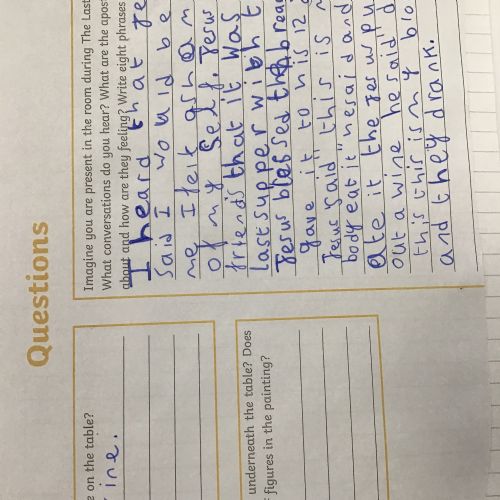 Questions
e on the table?
ine.
underneath the table? Does
figures in the painting?
Imagine you are present in the room during The Last
What conversations do you hear? What are the apos
about and how are they feeling? Write eight phrases
I heard that Je
said I would be
me I felt asham
of my self. Jesus
friends that it was
last supper with t
Jesus blessed the brea
gave it to his 12
Jesus said "this is m
body eat it" he said and
ate it the Jesus pu
out a wine he said" d
this this is my blo
and they drank.